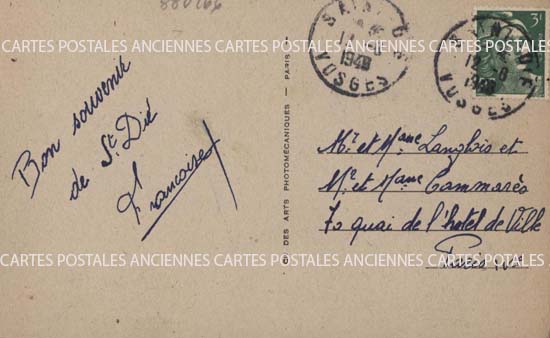 880266
SAINT-DIÉ
VOSGES
3F
SAINT-DIÉ
VOSGES
CARTES POSTALES ANCIENNES CARTES POSTALES ANCIENNES CARTES POSTALES ANCIENNES
Bon souvenir
de St Dié
Francoise
DES ARTS PHOTOMÉCANIQUES — PARIS
Mr et Mme Langlois et
Mr et Mme Cammarès
70 quai de l'hôtel de Ville
Paris
CARTES POSTALES ANCIENNES CARTES POSTALES ANCIENNES CARTES POSTALES ANCIENNES